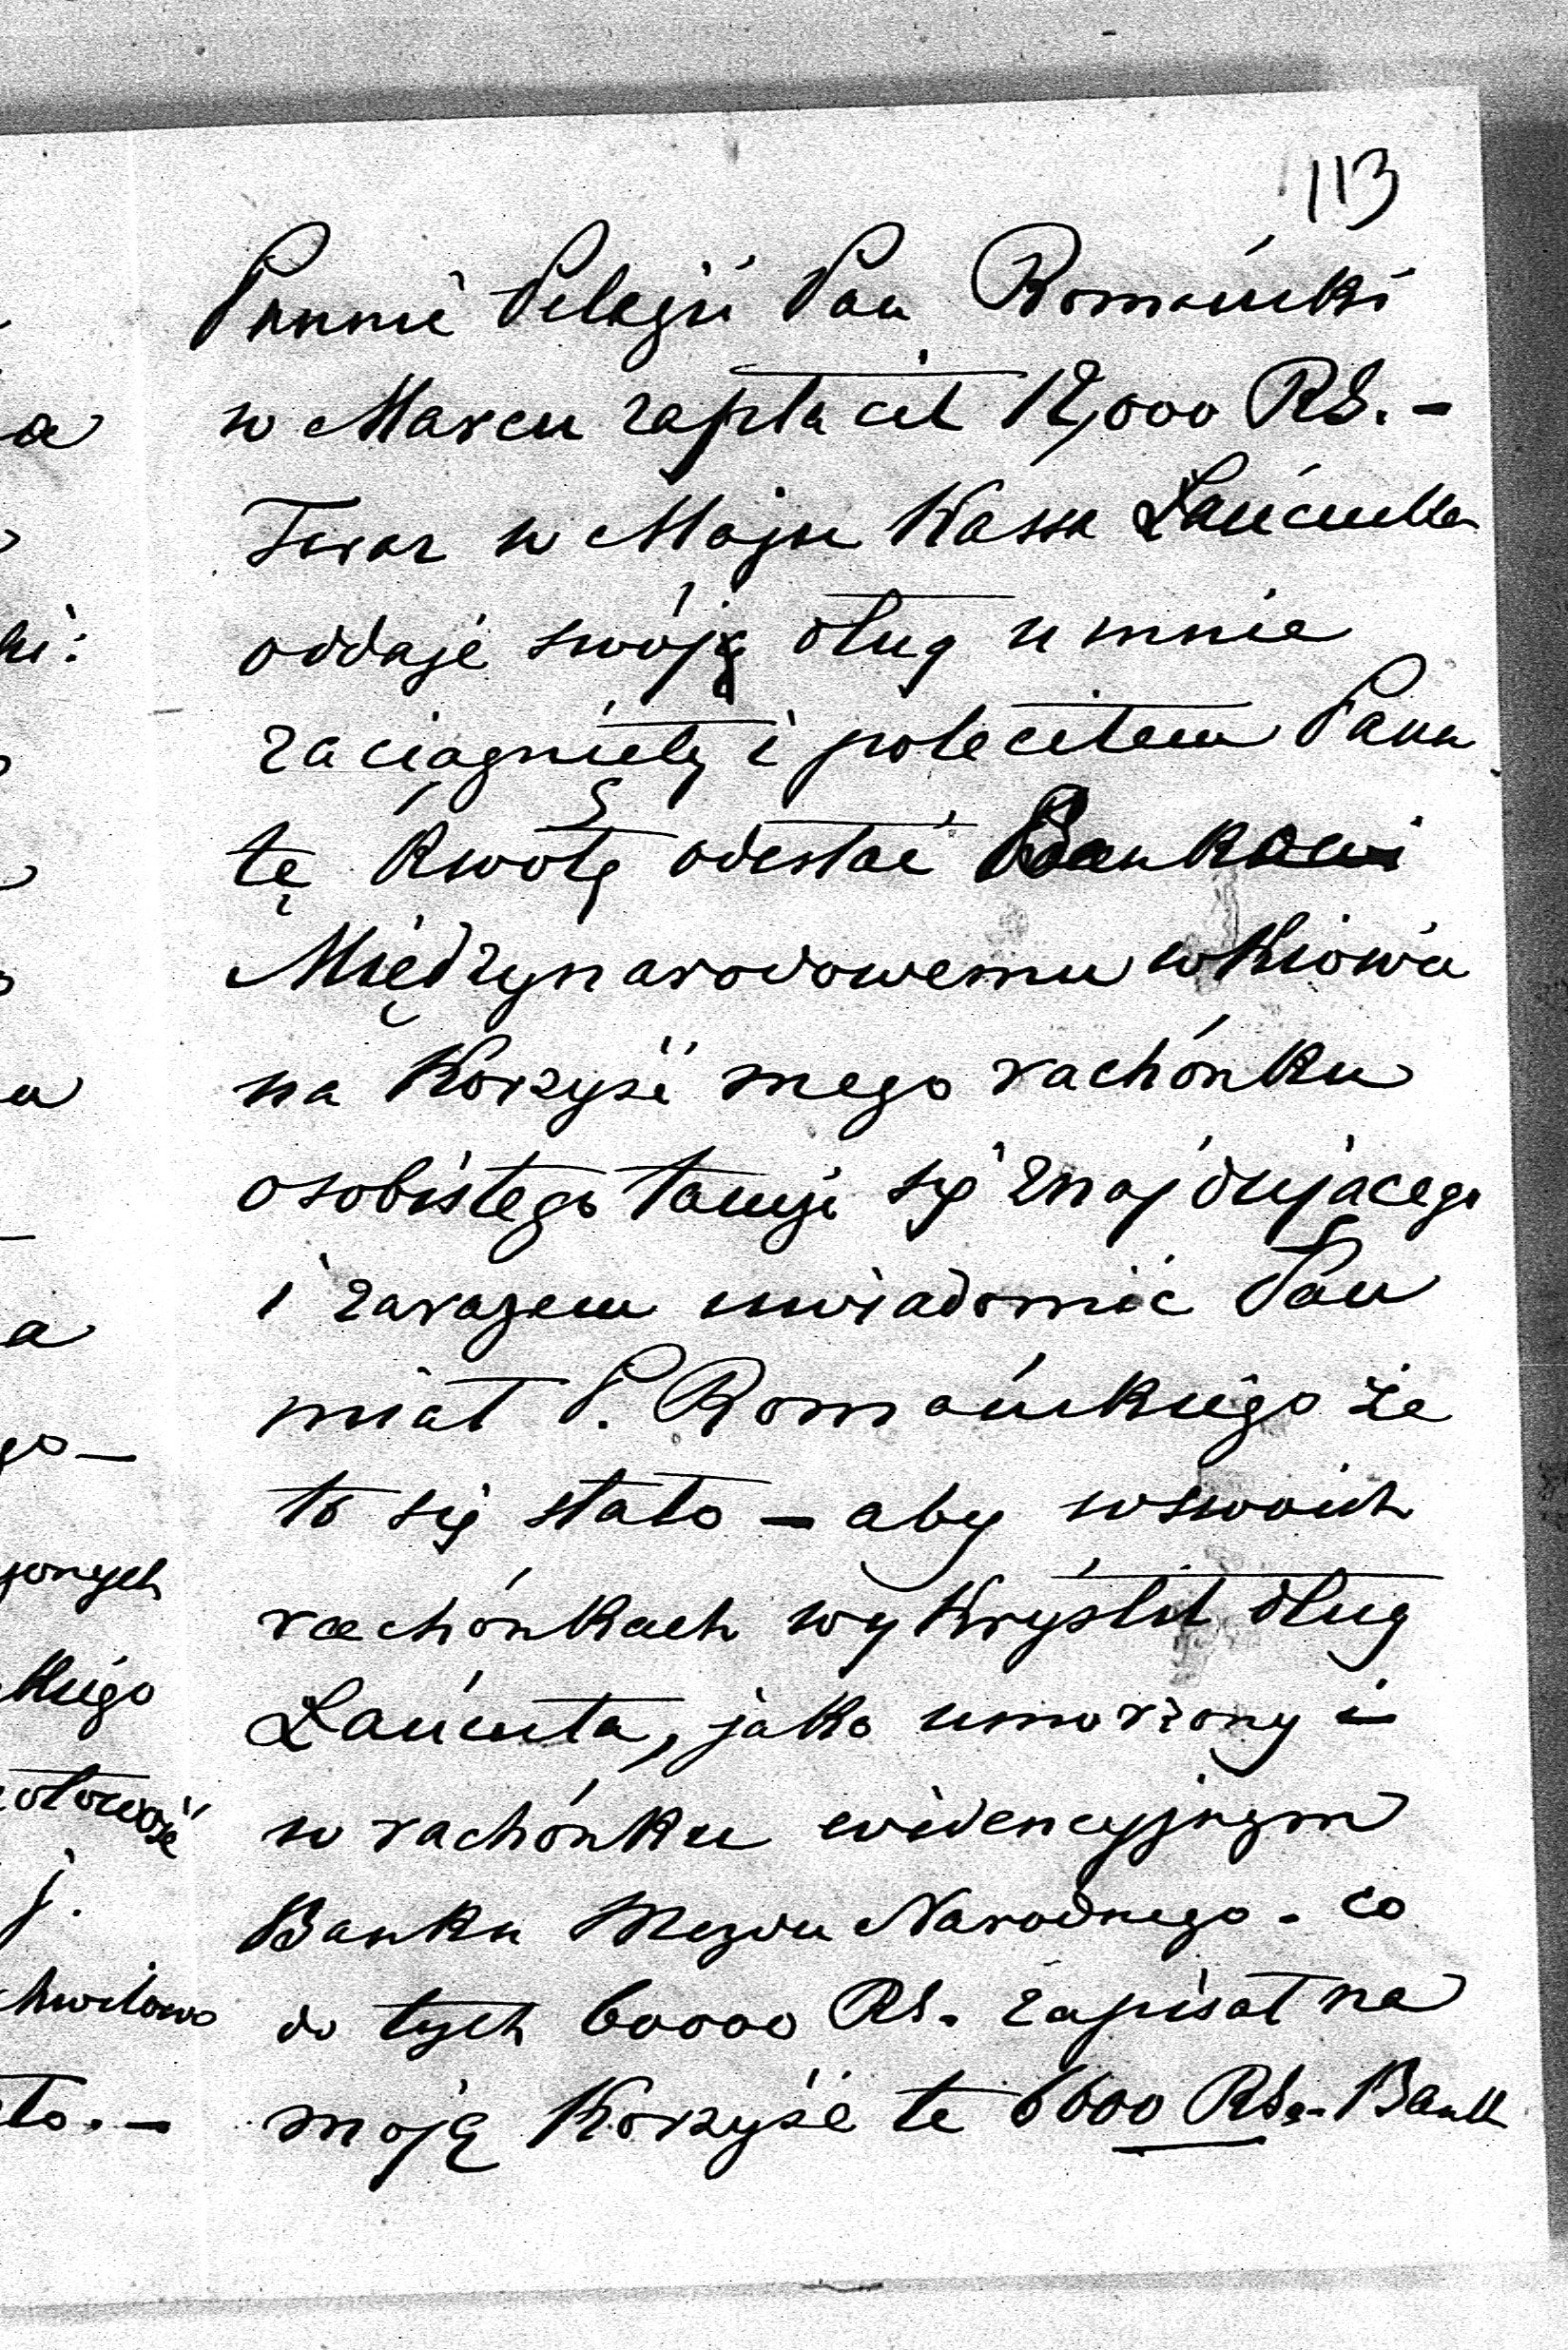 113
Pannie Pelagji Pan Romański
w Marcu zapłacił 12,000 RS. -
Teraz w Maju Kassa Łańcucka
oddaje swój dług u mnie
zaciągnięty i poleciłem Panu
tę kwotę odesłać Bankowi
Międzynarodowemu w Kiowie
na korzyść mego rachónku
osobistego tamże się znajdującego
i zarazem uwiadomić Pan
miał P. Romańskiego że
to się stało — aby w swoich
rachónkach wykryślił dług
Łańcuta, jako umorzony i
w rachónku ewidencyjnym
Banku Mezdu Narodnego. co
do tych 60000 RS. zapisał na
moję korzyść te 6000 RS.- Bank
a
ki:
a
a
go —
kiego
j.
chwilowo
to. —